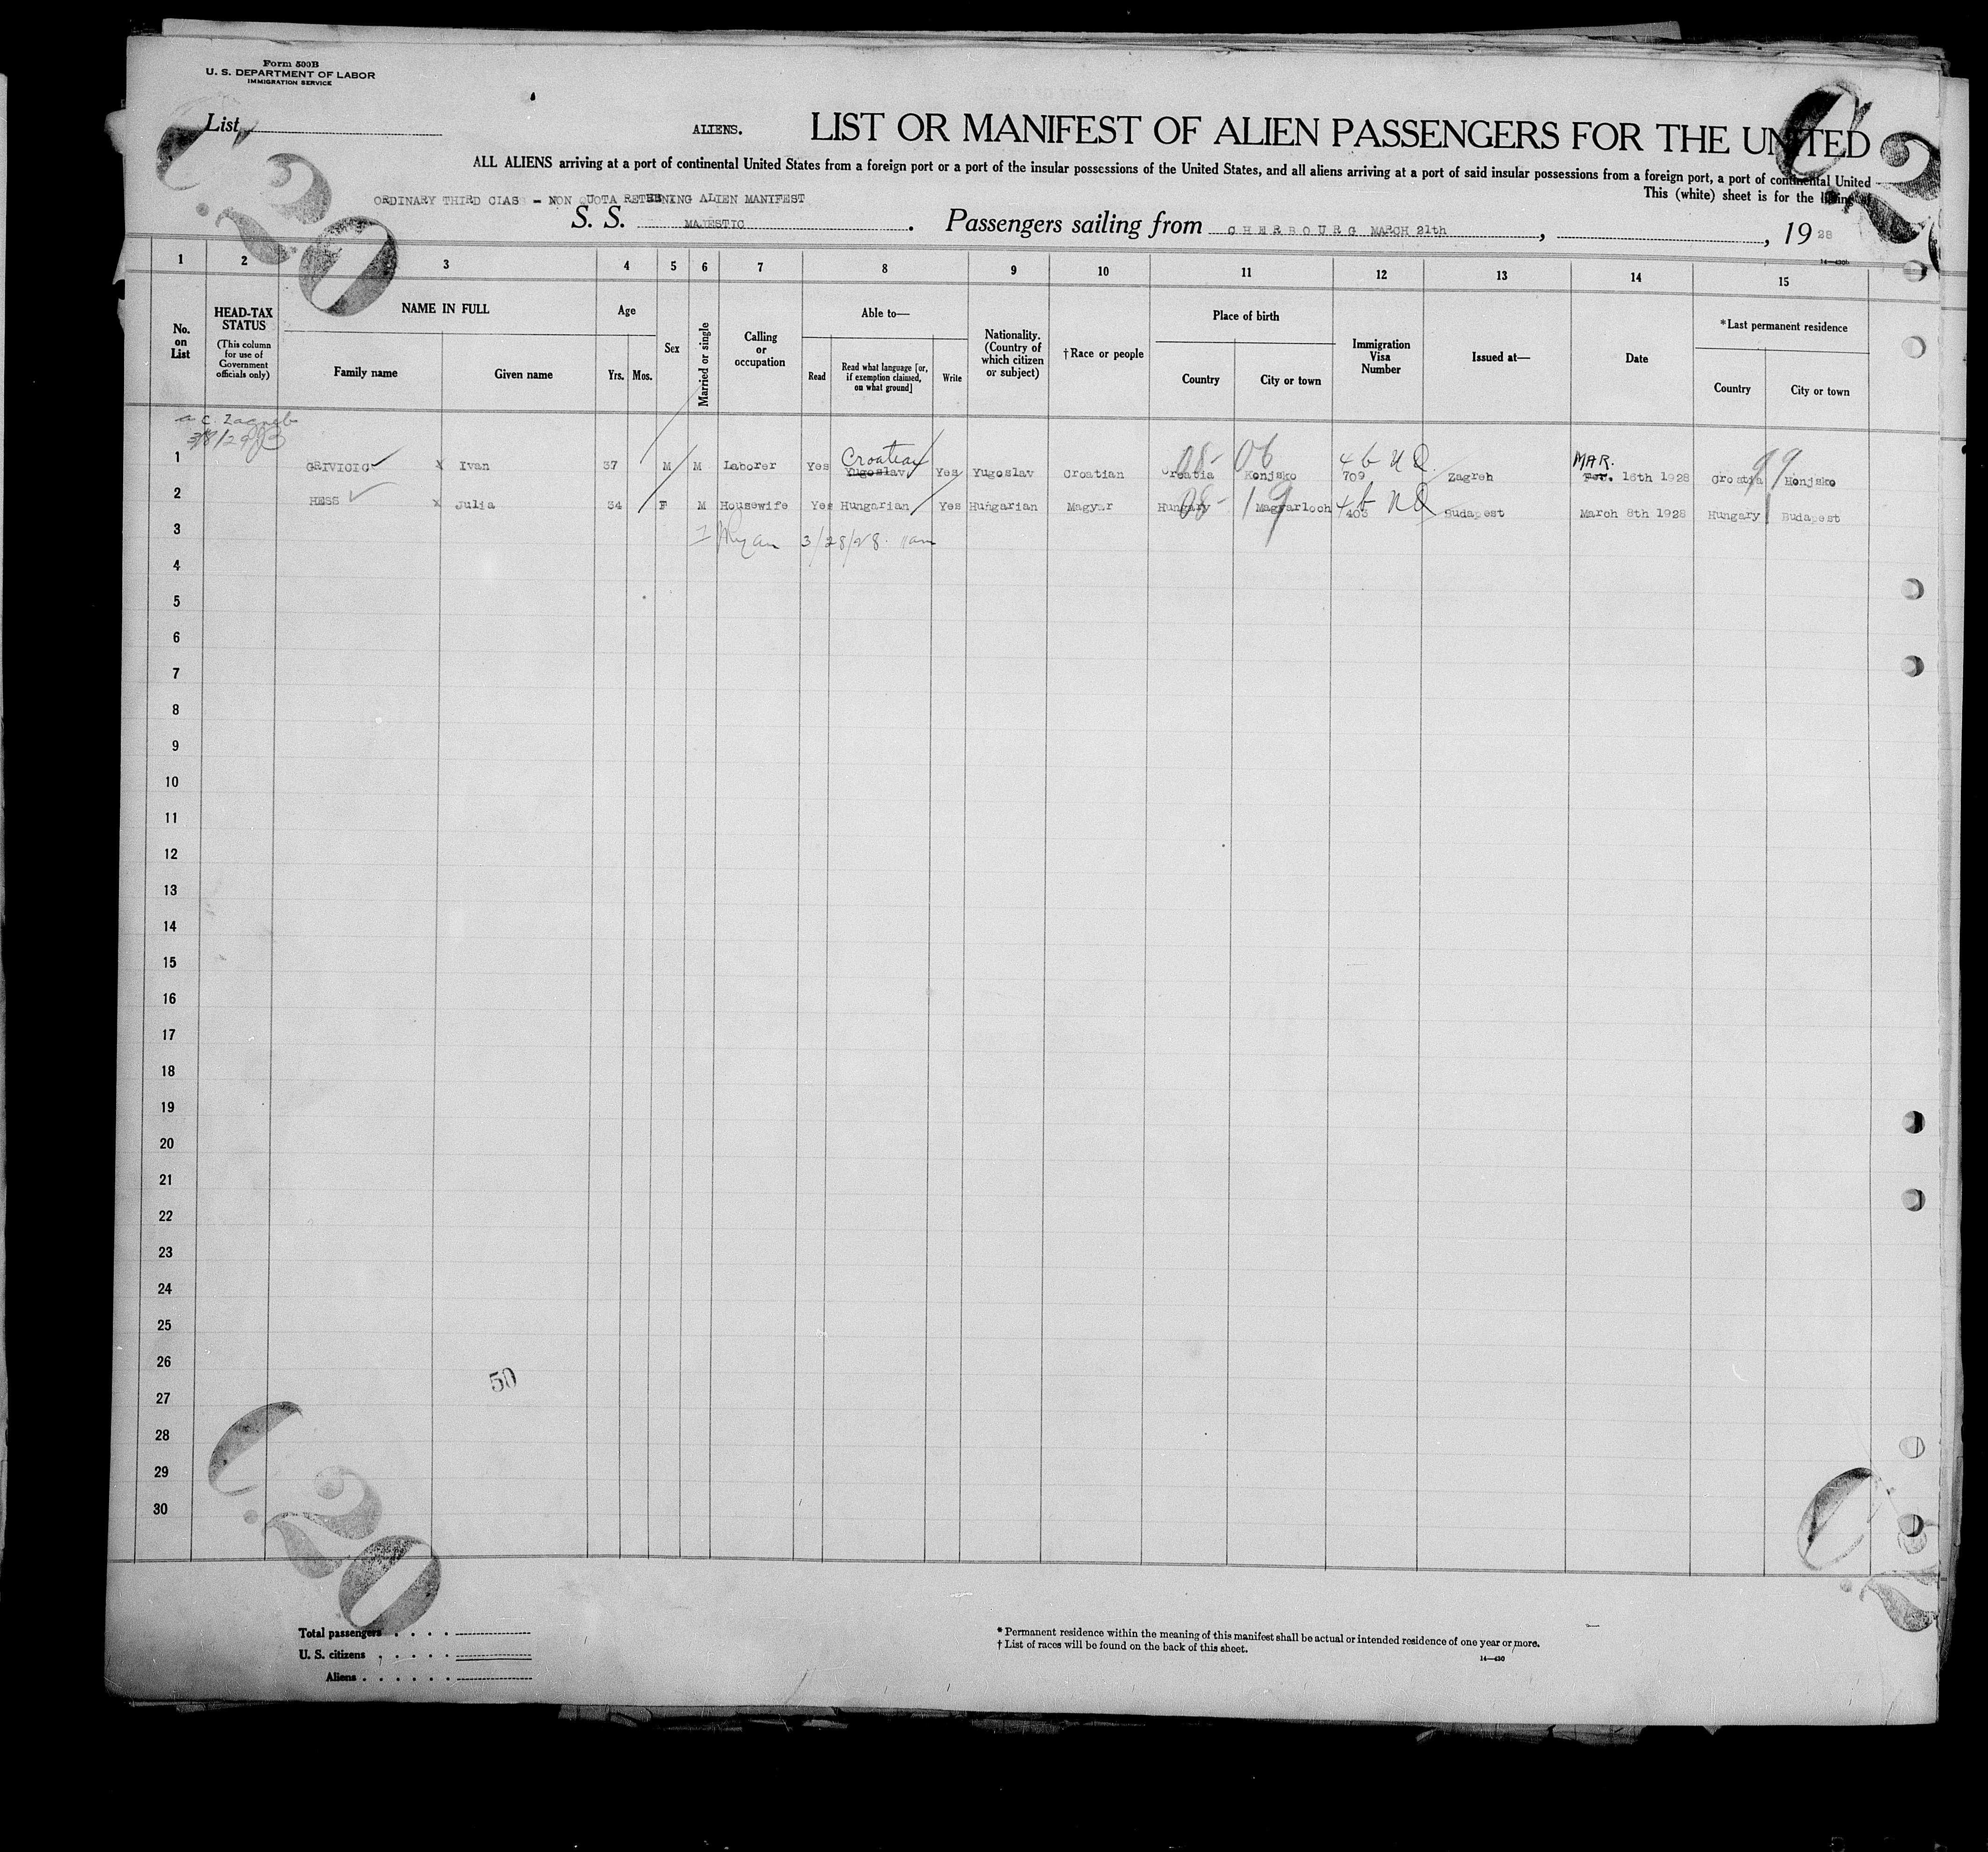 Form 500B
U. S. DEPARTMENT OF LABOR
IMMIGRATION SERVICE
List
ALIENS.
LIST OR MANIFEST OF ALIEN PASSENGERS FOR THE UNITED
ALL ALIENS arriving at a port of continental United States from a foreign port or a port of the insular possessions of the United States, and all aliens arriving at a port of said insular possessions from a foreign port, a port of continental United
This (white) sheet is for the listing of
ORDINARY THIRD CLASS - NON QUOTA RETURNING ALIEN MANIFEST
S. S. MAJESTIC. Passengers sailing from CHERBOURG MARCH 21th, , 1928
14—430b
1 2 3 4 5 6 7 8 9 10 11 12 13 14 15
No. on List
HEAD-TAX STATUS
(This column for use of Government officials only)
NAME IN FULL
Family name Given name
Age
Yrs. Mos.
Sex
Married or single
Calling or occupation
Able to—
Read
Read what language [or, if exemption claimed, on what ground]
Write
Nationality. (Country of which citizen or subject)
†Race or people
Place of birth
Country City or town
Immigration Visa Number
Issued at—
Date
*Last permanent residence
Country City or town
a c. Zagreb
1 GRIVICIC x Ivan 37 M M Laborer Yes Croatian Yugoslav Yes Yugoslav Croatian Croatia 08- Konjsko 06 709 Zagreb MAR. 16th 1928 Croatia Konjsko 99
2 HESS x Julia 34 F M Housewife Yes Hungarian Yes Hungarian Magyar Hungary 08- Magyarloch 19 403 Budapest March 8th 1928 Hungary Budapest
3 Ryan 3/28/28. 11am
4
5
6
7
8
9
10
11
12
13
14
15
16
17
18
19
20
21
22
23
24
25
26
27
28
29
30
50
C.20
C.20
Total passengers
U. S. citizens
Aliens
* Permanent residence within the meaning of this manifest shall be actual or intended residence of one year or more.
† List of races will be found on the back of this sheet.
14—430